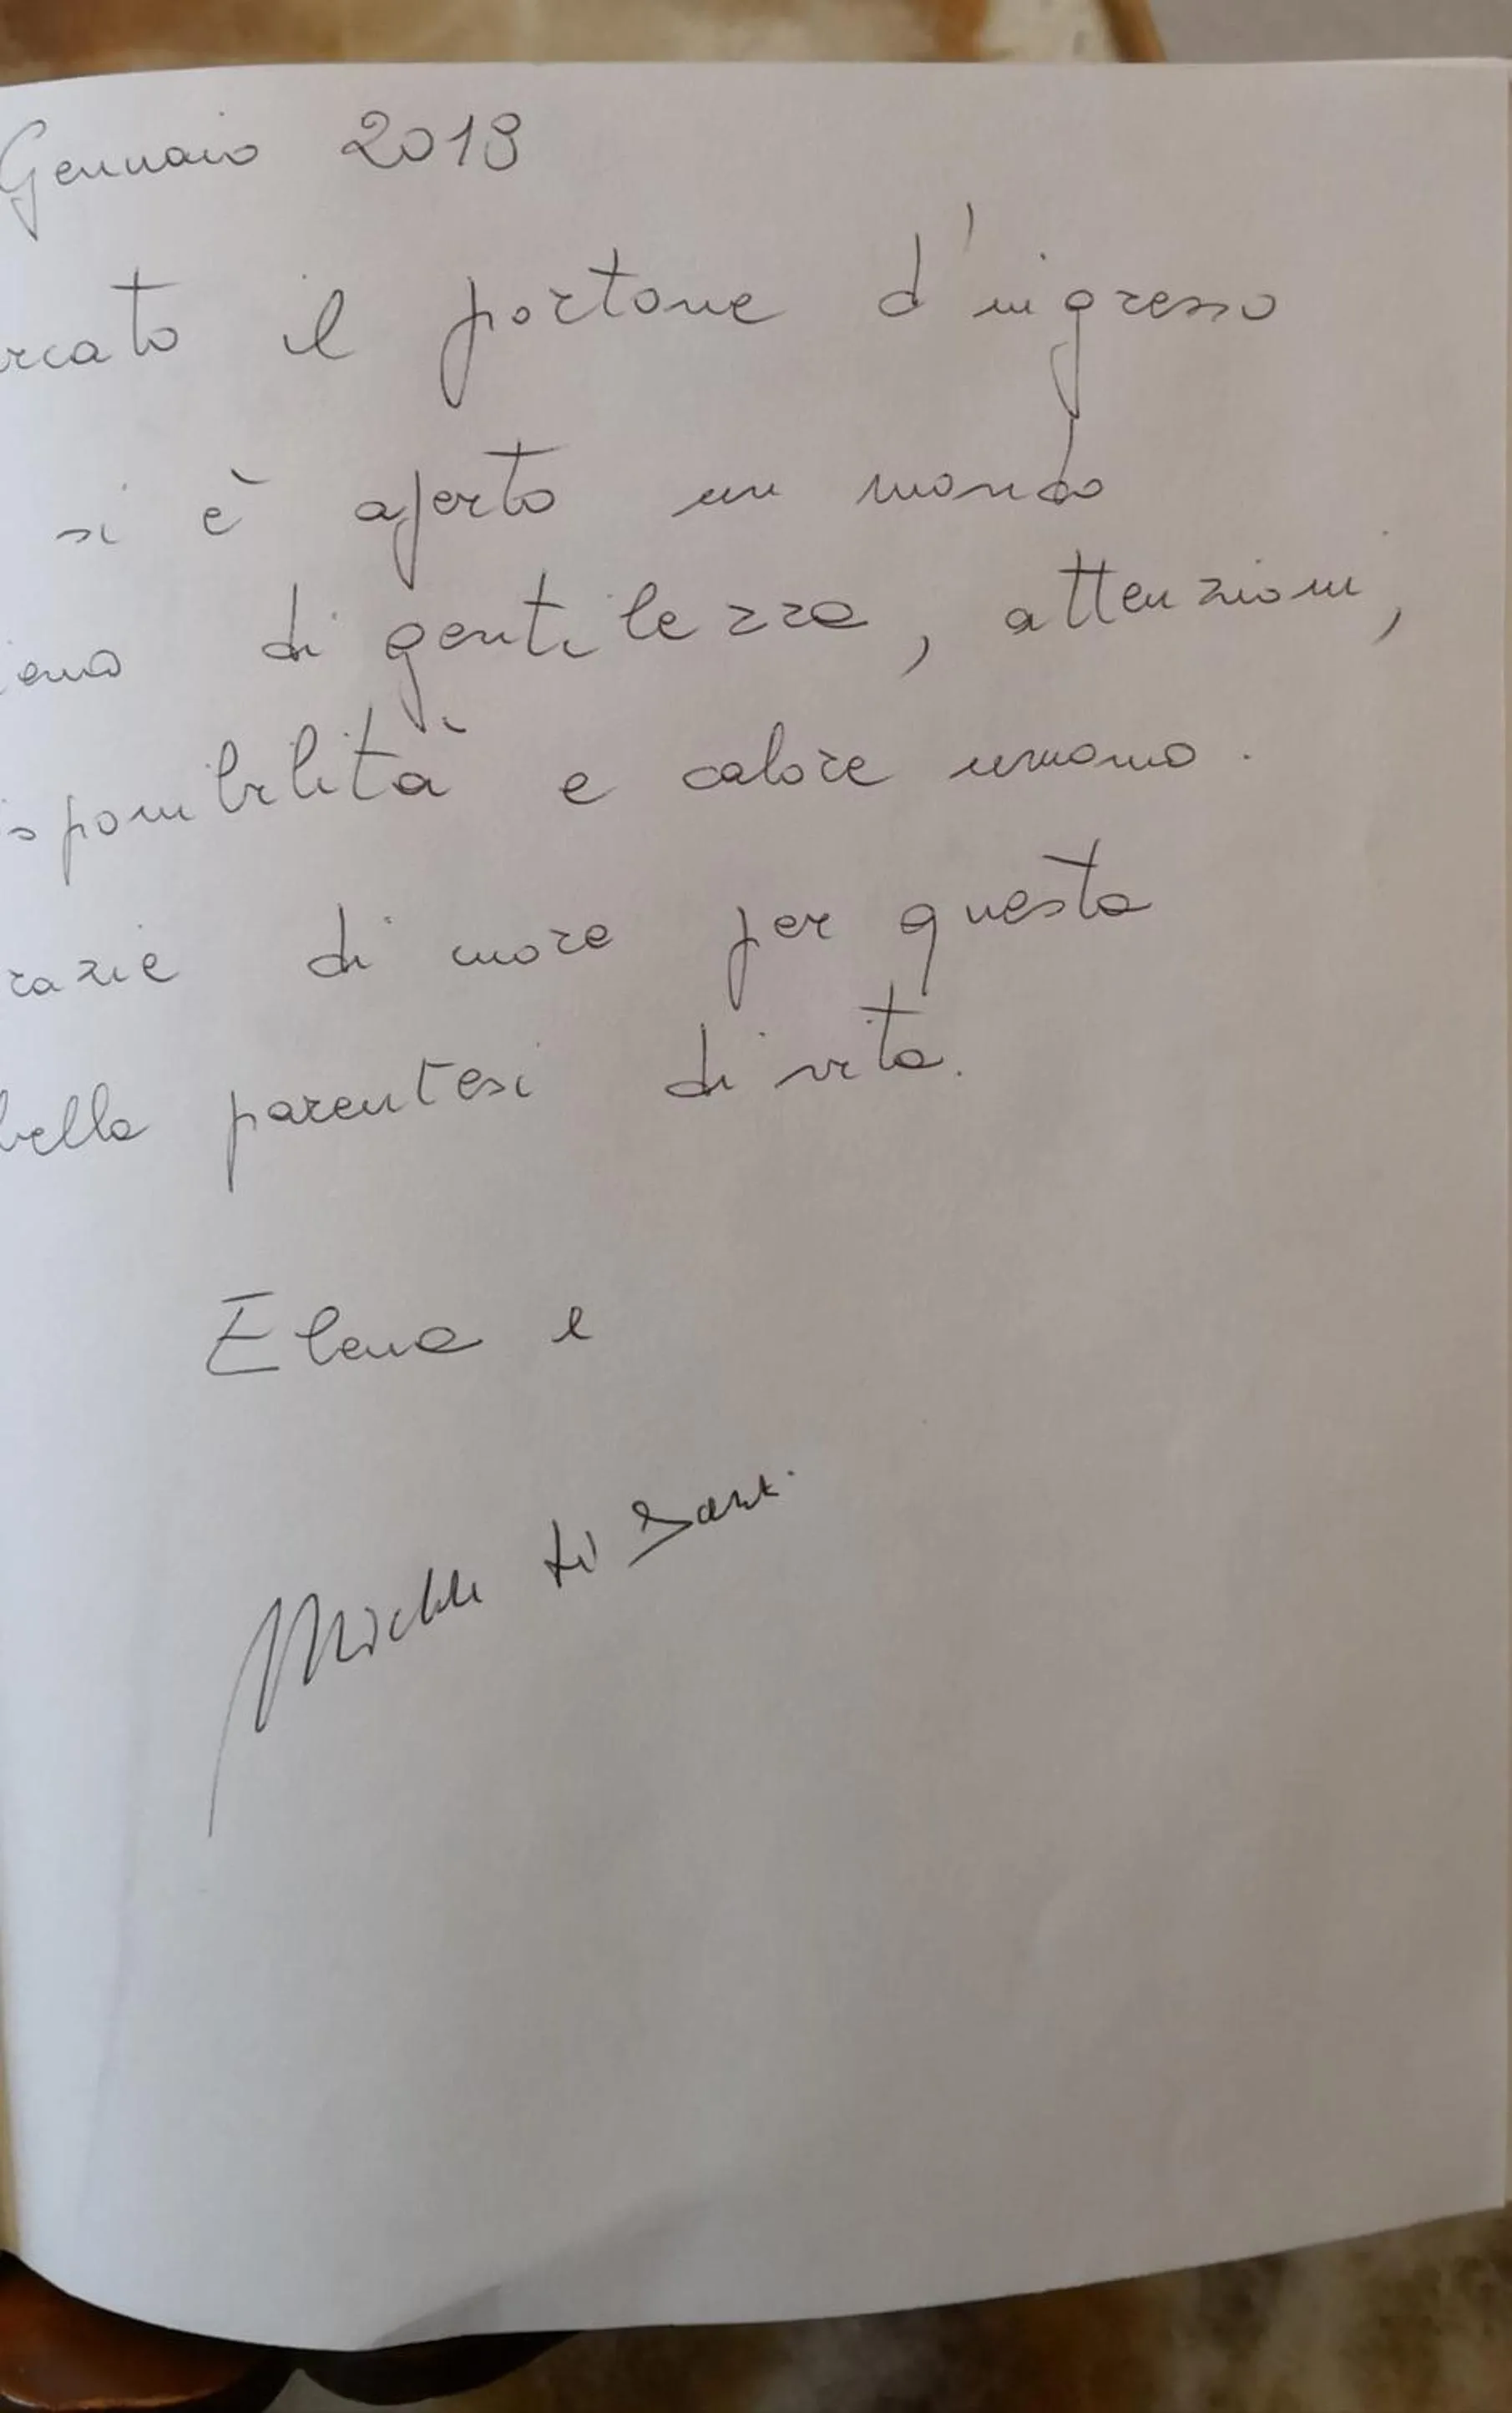 Gennaio 2019
rcato il portone d'ingresso
si è aperto un mondo
ieno di gentilezza, attenzioni,
isponibilità e calore umano.
razie di cuore per questa
bella parentesi di vita.
Elena e
Michele di